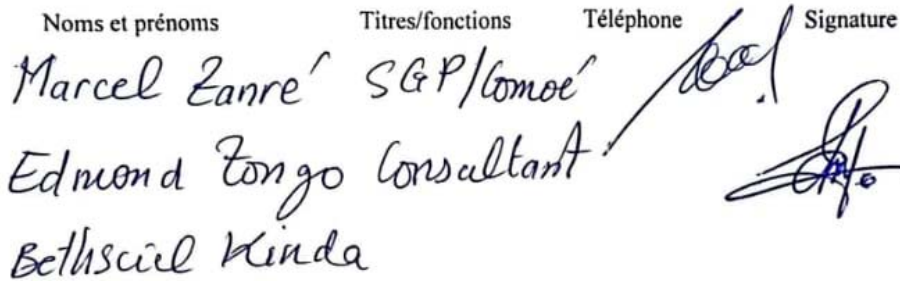 Noms et prénoms Titres/fonctions Téléphone Signature
Marcel Zanré SGP/Comoé
Edmond Zongo Consultant
Bethsciel Kinda